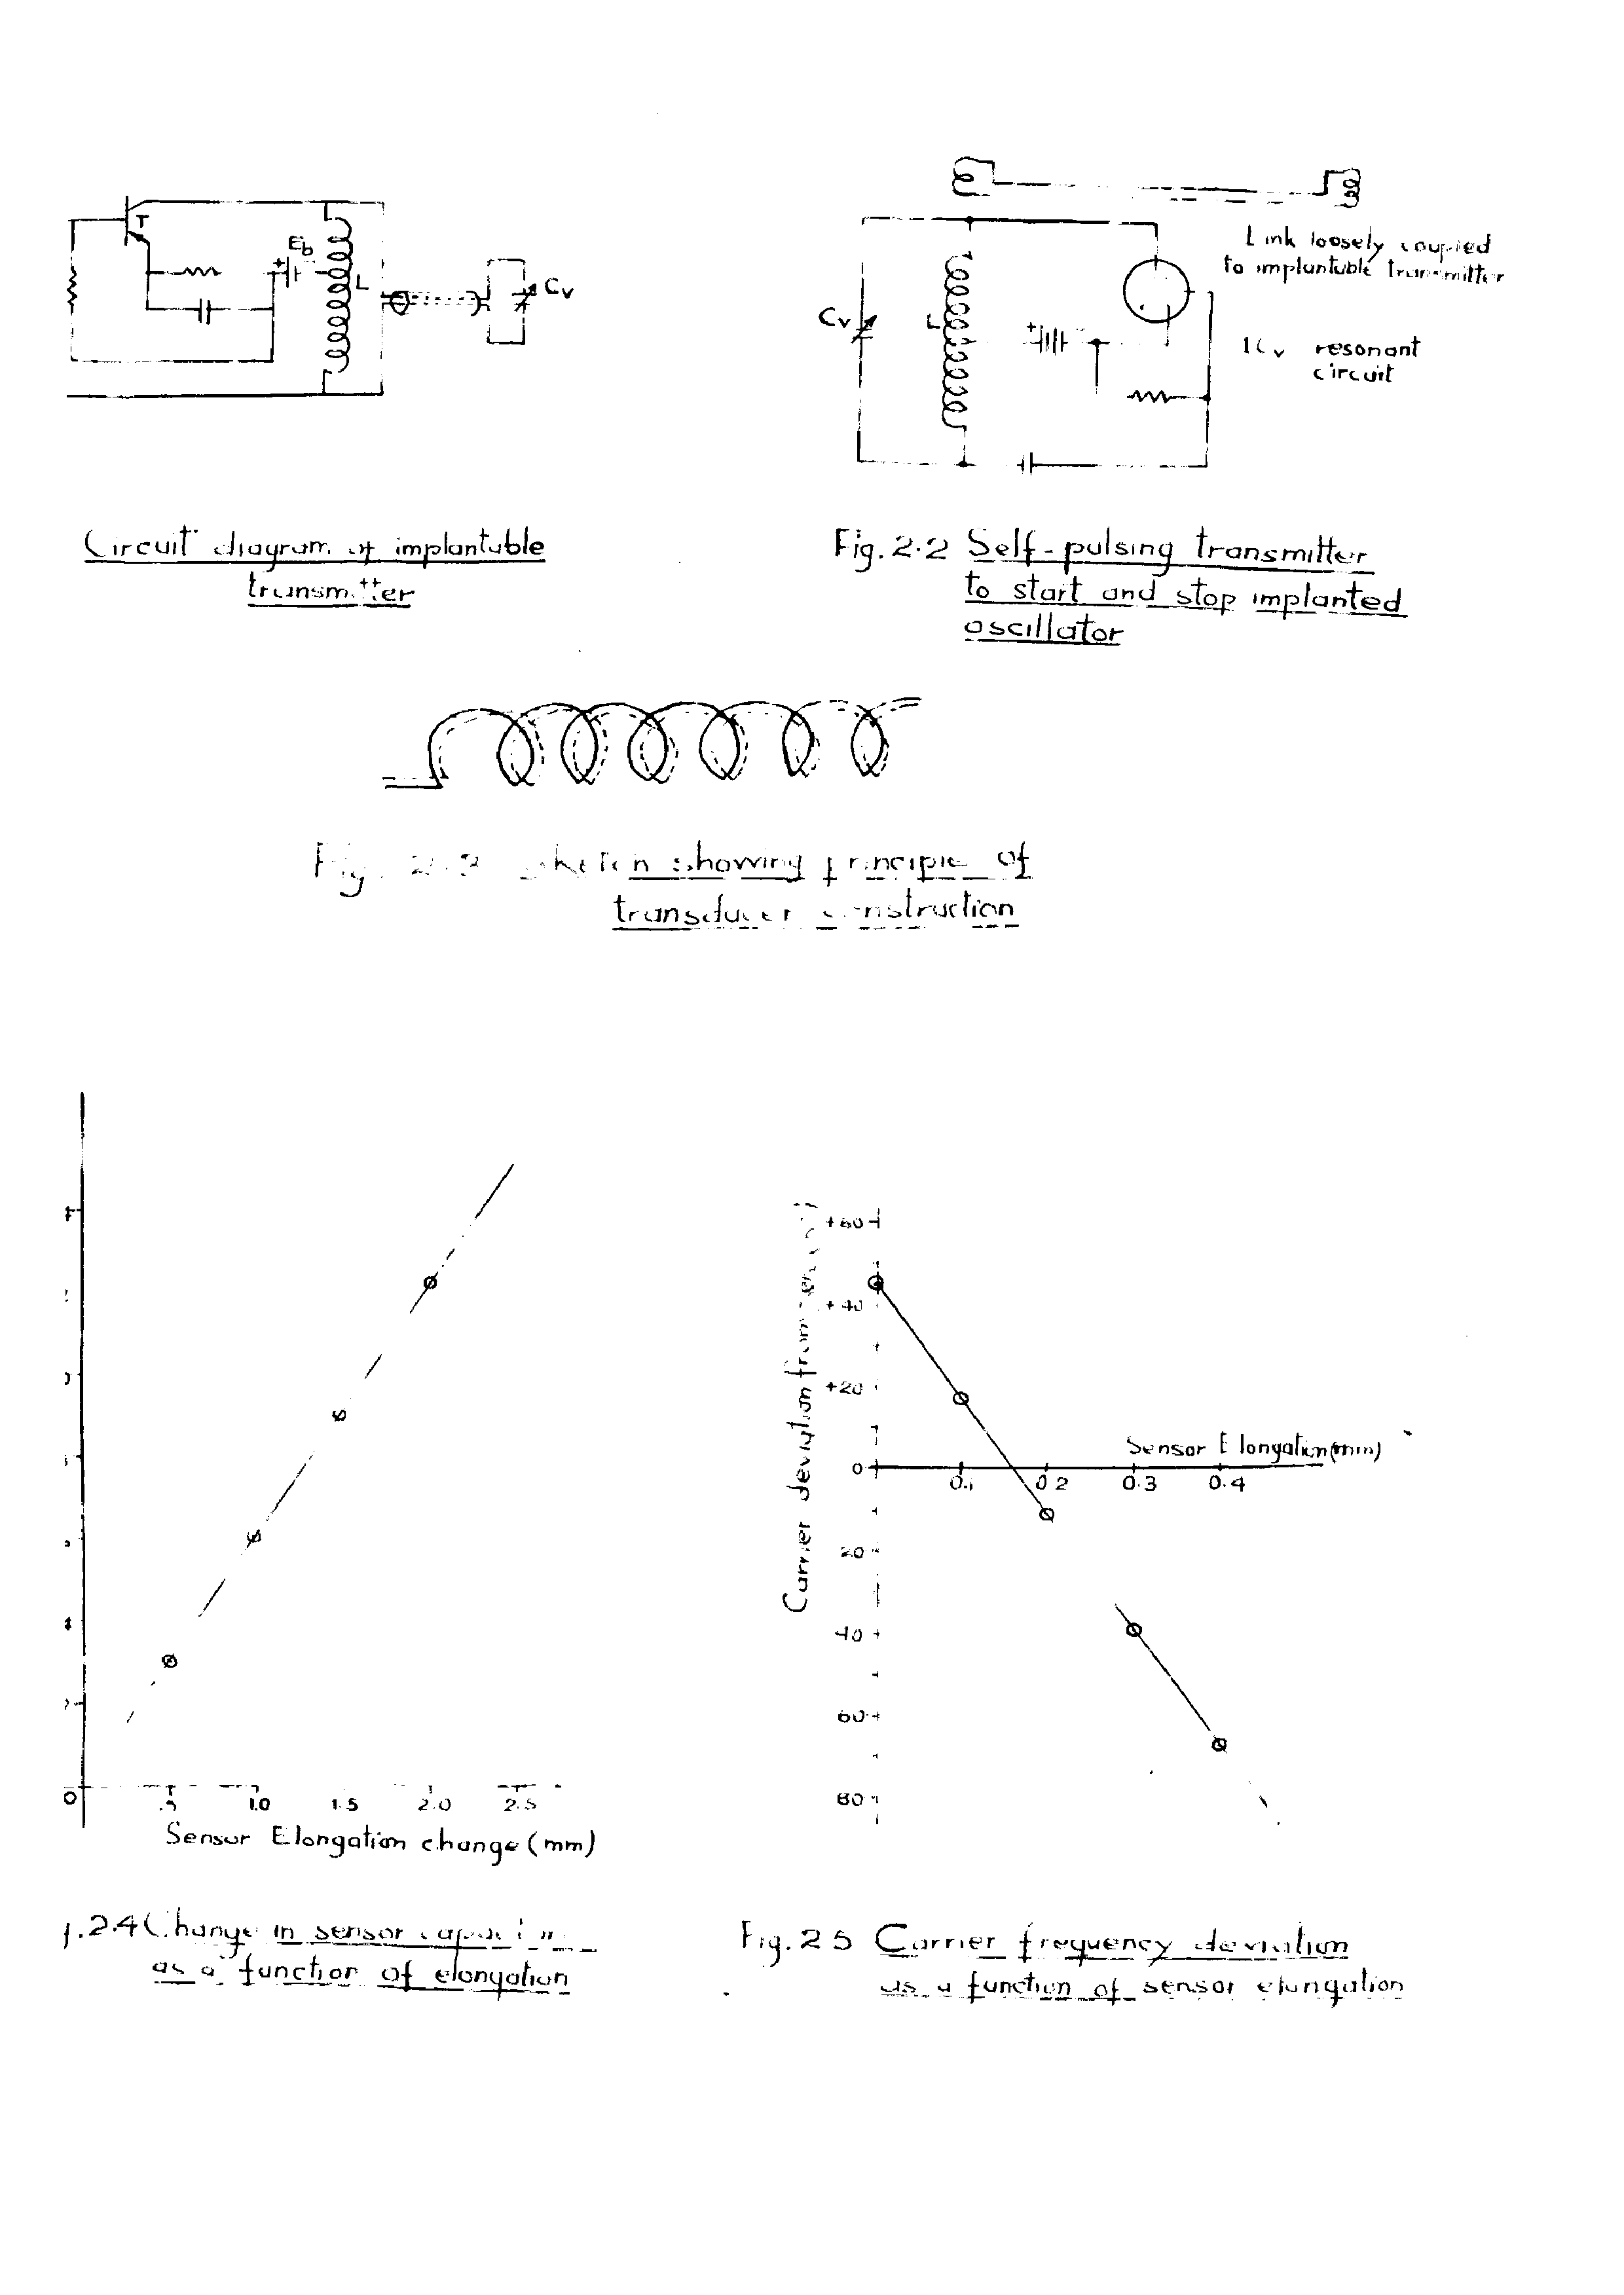 T
Eb
+
L
Cv
Circuit diagram of implantable
transmitter
Link loosely coupled
to implantable transmitter
Cv
L
+
resonant
circuit
Fig. 2.2 Self-pulsing transmitter
to start and stop implanted
oscillator
Fig. 2.3 Sketch showing principle of
transducer construction
0
1.0 1.5 2.0 2.5
Sensor Elongation change (mm)
.2.4 Change in sensor
as a function of elongation
Carrier deviation from
+60
+40
+20
0
20
40
60
80
Sensor Elongation (mm)
0.1 0.2 0.3 0.4
Fig. 2.5 Carrier frequency deviation
as a function of sensor elongation